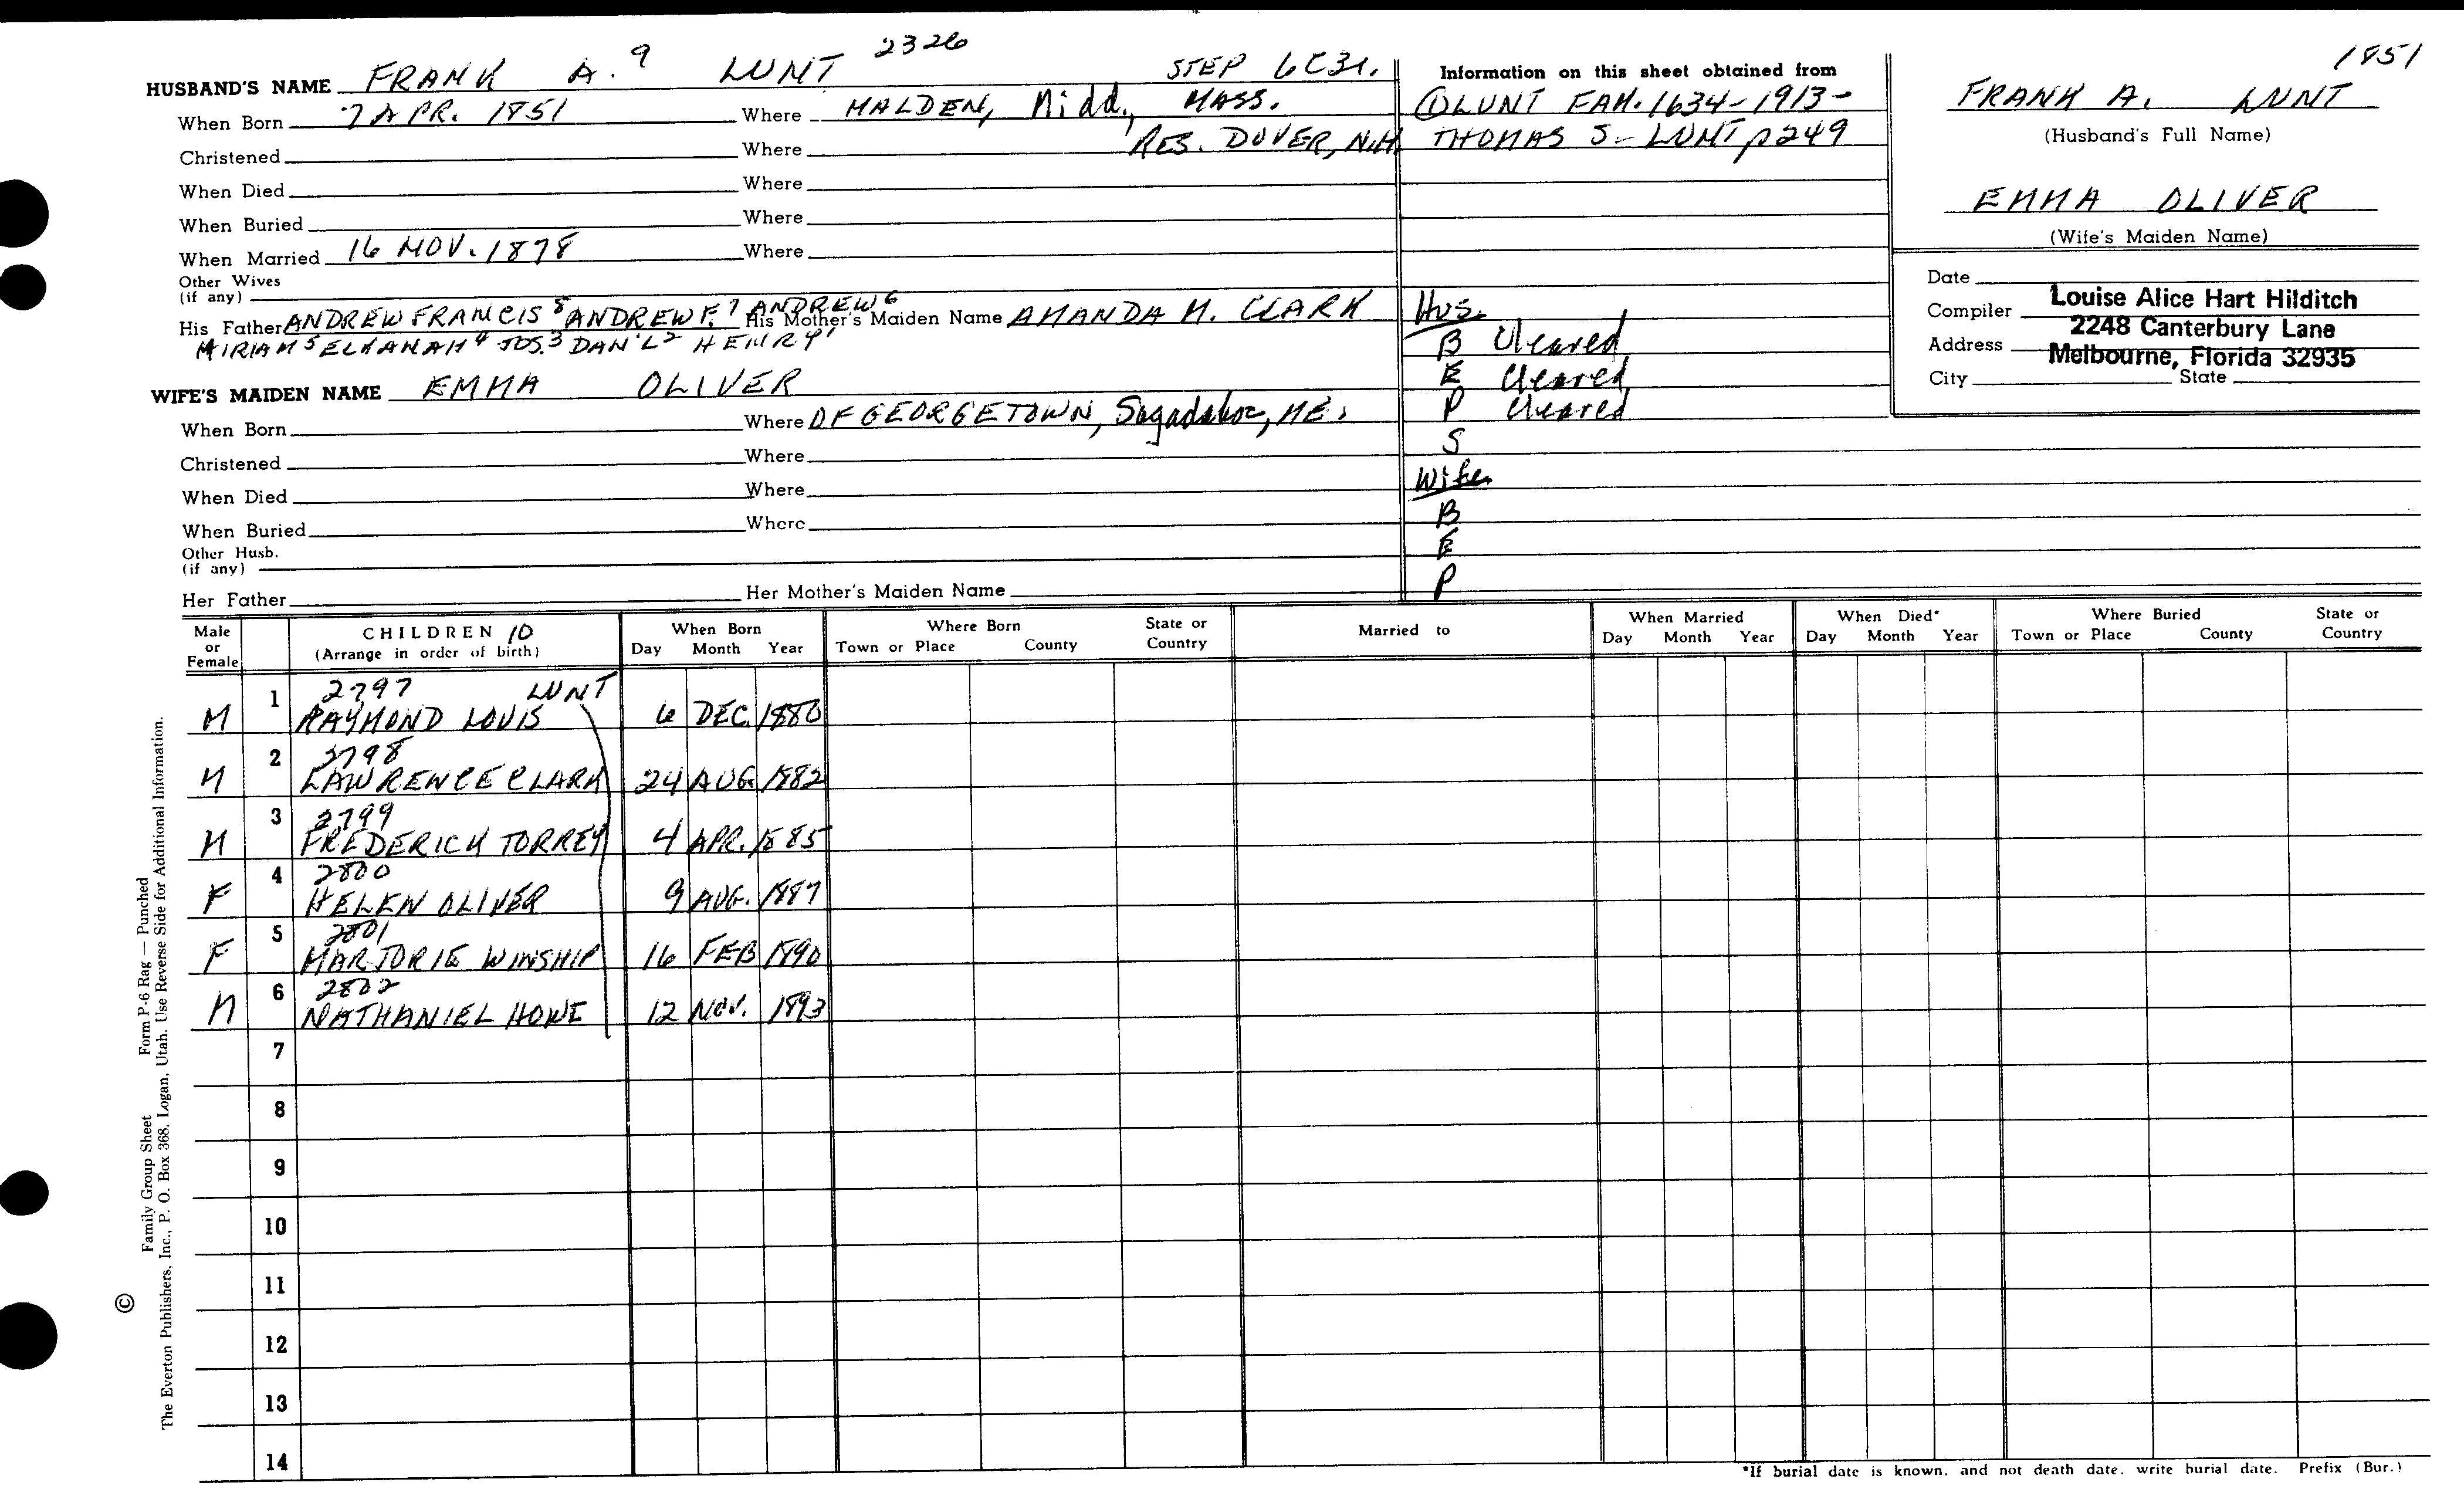 2326
1851
HUSBAND'S NAME FRANK A.9 LUNT STEP 6C31.
When Born 7 APR. 1851 Where MALDEN, Midd., MASS.
Christened Where RES. DOVER, N.H.
When Died Where
When Buried Where
When Married 16 NOV. 1878 Where
Other Wives
(if any)
His Father ANDREW FRANCIS8 ANDREW F.7 ANDREW6 His Mother's Maiden Name AMANDA M. CLARK
MIRIAM5 ELKANAH4 JOS.3 DAN'L2 HENRY1
WIFE'S MAIDEN NAME EMMA OLIVER
When Born Where OF GEORGETOWN, Sagadahoc, ME.
Christened Where
When Died Where
When Buried Where
Other Husb.
(if any)
Her Father Her Mother's Maiden Name
Information on this sheet obtained from
① LUNT FAM. 1634-1913-
THOMAS S. LUNT p249
Hus.
B Cleared
E Cleared
P Cleared
S
Wife
B
E
P
FRANK A. LUNT
(Husband's Full Name)
EMMA OLIVER
(Wife's Maiden Name)
Date
Compiler Louise Alice Hart Hilditch
Address 2248 Canterbury Lane
Melbourne, Florida 32935
City State
Male or Female CHILDREN 10 (Arrange in order of birth) When Born Day Month Year Where Born Town or Place County State or Country Married to When Married Day Month Year When Died* Day Month Year Where Buried Town or Place County State or Country
1 2797 LUNT
M RAYMOND LOUIS 6 DEC. 1880
2 2798
M LAWRENCE CLARK 24 AUG 1882
3 2799
M FREDERICK TORREY 4 APR. 1885
4 2800
F HELEN OLIVER 9 AUG. 1887
5 2801
F MARJORIE WINSHIP 16 FEB 1890
6 2802
M NATHANIEL HOWE 12 NOV. 1893
7
8
9
10
11
12
13
14
*If burial date is known, and not death date, write burial date. Prefix (Bur.)
© Family Group Sheet Form P-6 Rag — Punched
The Everton Publishers, Inc., P. O. Box 368, Logan, Utah. Use Reverse Side for Additional Information.